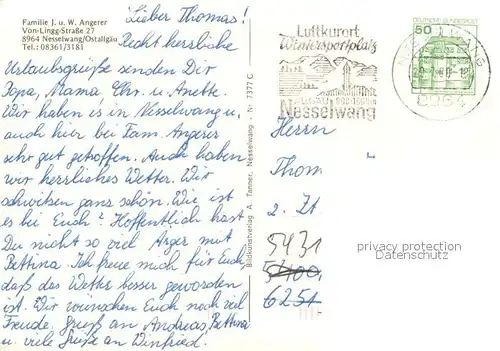 Familie J. u. W. Angerer
Von-Lingg-Straße 27
8964 Nesselwang/Ostallgäu
Tel.: 08361/3181
Lieber Thomas!
Recht herzliche
Urlaubsgrüße senden Dir
Papa, Mama Chr. u. Anette.
Wir haben es in Nesselwang u.
auch hier bei Fam. Angerer
sehr gut getroffen. Auch haben
wir herrliches Wetter. Wir
schwitzen ganz schön. Wie ist
es bei Euch? Hoffentlich hast
Du nicht so viel Ärger mit
Bettina. Ich freue mich für Euch,
daß das Wetter besser geworden
ist. Wir wünschen Euch noch viel
Freude. Gruß an Andreas, Bettina
u. viele Grüße an Winfried.
Bildkunstverlag A. Tanner, Nesselwang - Nr. 7377 C
Luftkurort
Wintersportplatz
ALLGÄU 900-1600m
Nesselwang
DEUTSCHE BUNDESPOST
50
NESSELWANG
8964
Herrn
Thom
2. Zt
5431
6251
privacy protection
Datenschutz